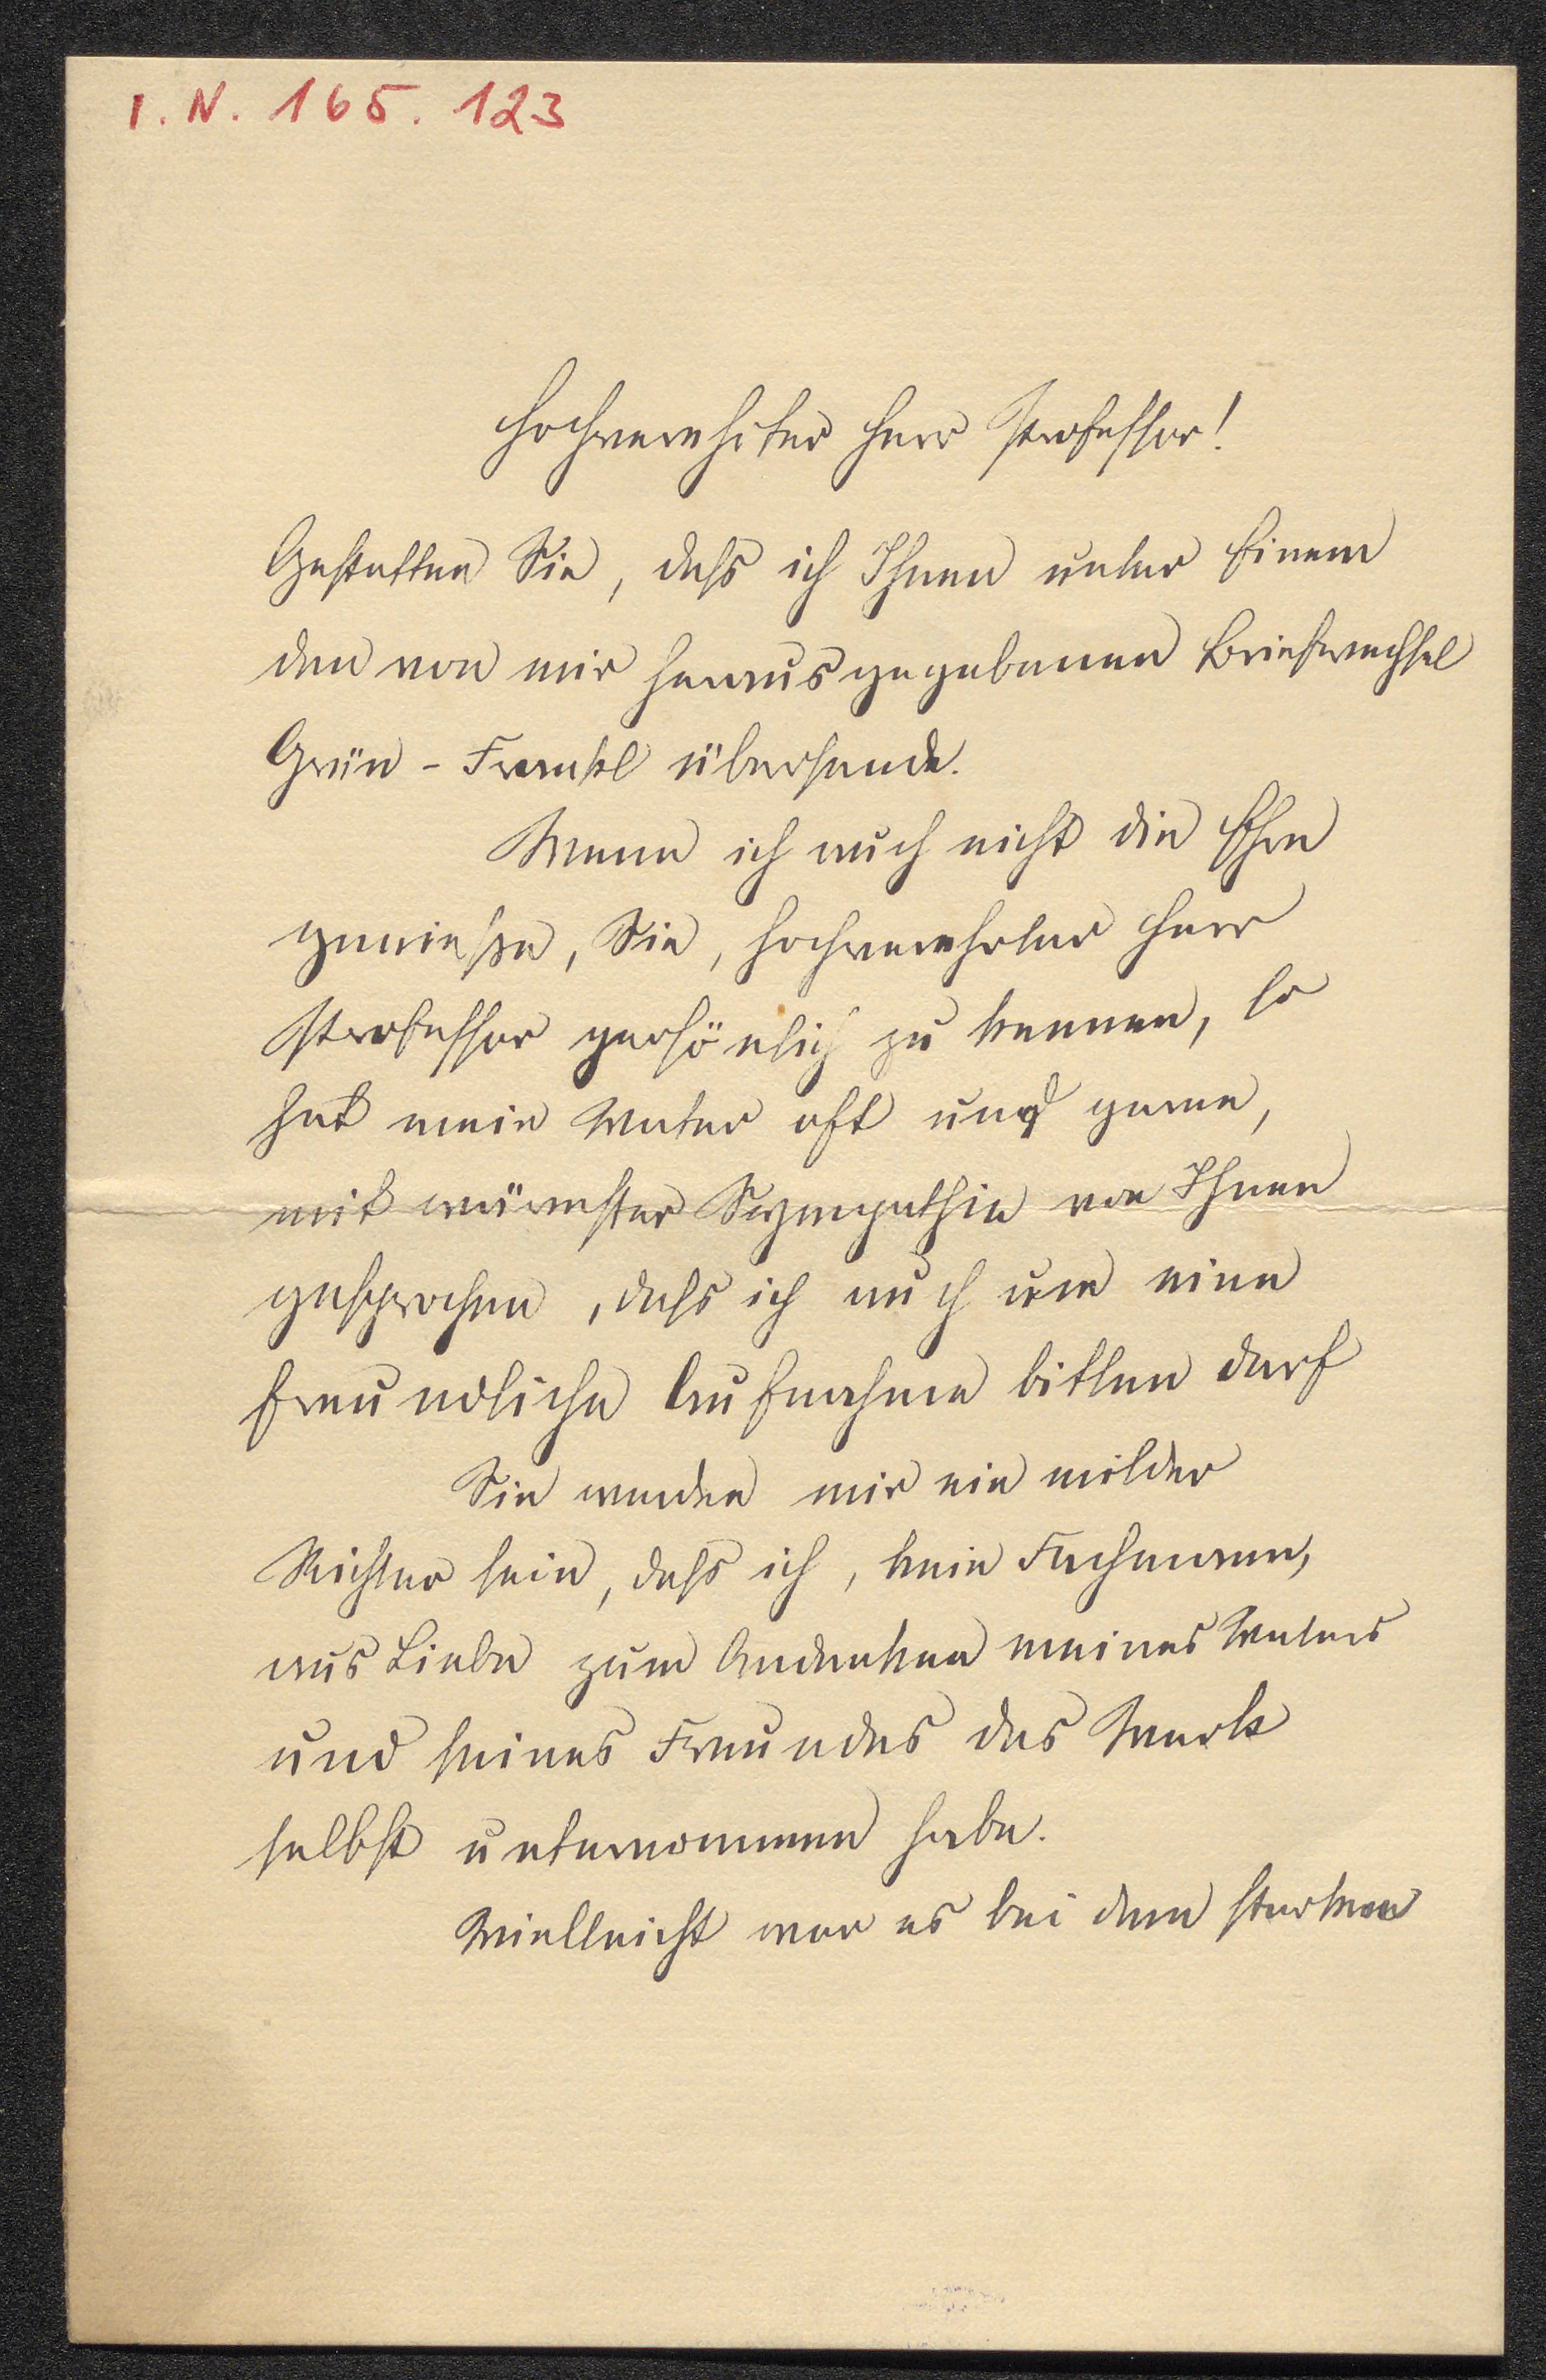 I. N. 165. 123
Hochverehrter Herr Professor!
Gestatten Sie, dass ich Ihnen unter Einem
den von mir herausgegebenen Briefwechsel
Grün - Frankl übersende.
Wenn ich auch nicht die Ehre
genieße, Sie, hochverehrter Herr
Professor persönlich zu kennen, so
hat mein Vater oft und gerne,
mit wärmster Sympathie von Ihnen
gesprochen, dass ich auch um eine
freundliche Aufnahme bitten darf
Sie werden mir ein milder
Richter sein, dass ich, kein Fachmann,
aus Liebe zum Andenken meines Vaters
und seines Freundes das Werk
selbst unternommen habe.
Vielleicht war es bei dem starken